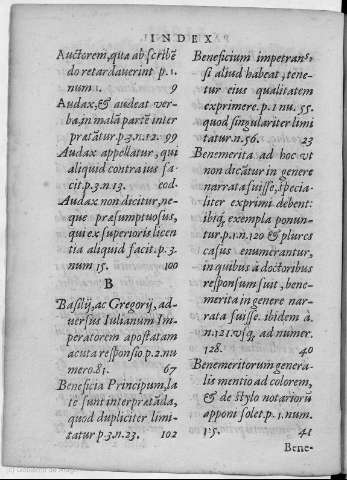 INDEX
Auctorem, qua ab scribē
do retardaverint p. 1.
num 1. 9
Audax, & audeat ver-
ba, in malā partē inter
prætātur. p. 3. n. 12. 99
Audax appellatur, qui
aliquid contra ius fa-
cit. p. 3. n. 13. eod.
Audax non dicitur, ne-
que præsumptuosus,
qui ex superioris licen
tia aliquid facit. p. 3.
num 15. 100
B
Basilij, ac Gregorij, ad-
versus Iulianum Im-
peratorem apostatam
acuta responsio p. 2. nu
mero. 81. 67
Beneficia Principum, la
tè sunt interpretāda,
quod dupliciter limi-
tatur p. 3. n. 23. 102
Beneficium impetrans,
si aliud habeat, tene-
tur eius qualitatem
exprimere. p. 1 nu. 55.
quod singulariter limi
tatur n. 56. 23
Benemerita ad hoc vt
non dicātur in genere
narrata fuisse, specia-
liter exprimi debent:
ibiq; exempla ponun-
tur, p. 1. n. 120 & plures
casus enumerantur,
in quibus à doctoribus
responsum fuit, bene-
merita in genere nar-
rata fuisse. ibidem à.
n. 121. vsq; ad numer.
128. 40
Benemeritorum genera-
lis mentio ad colorem,
& de stylo notariorū
apponi solet p. 1. num.
15. 41
Bene-
(c) Gobierno de